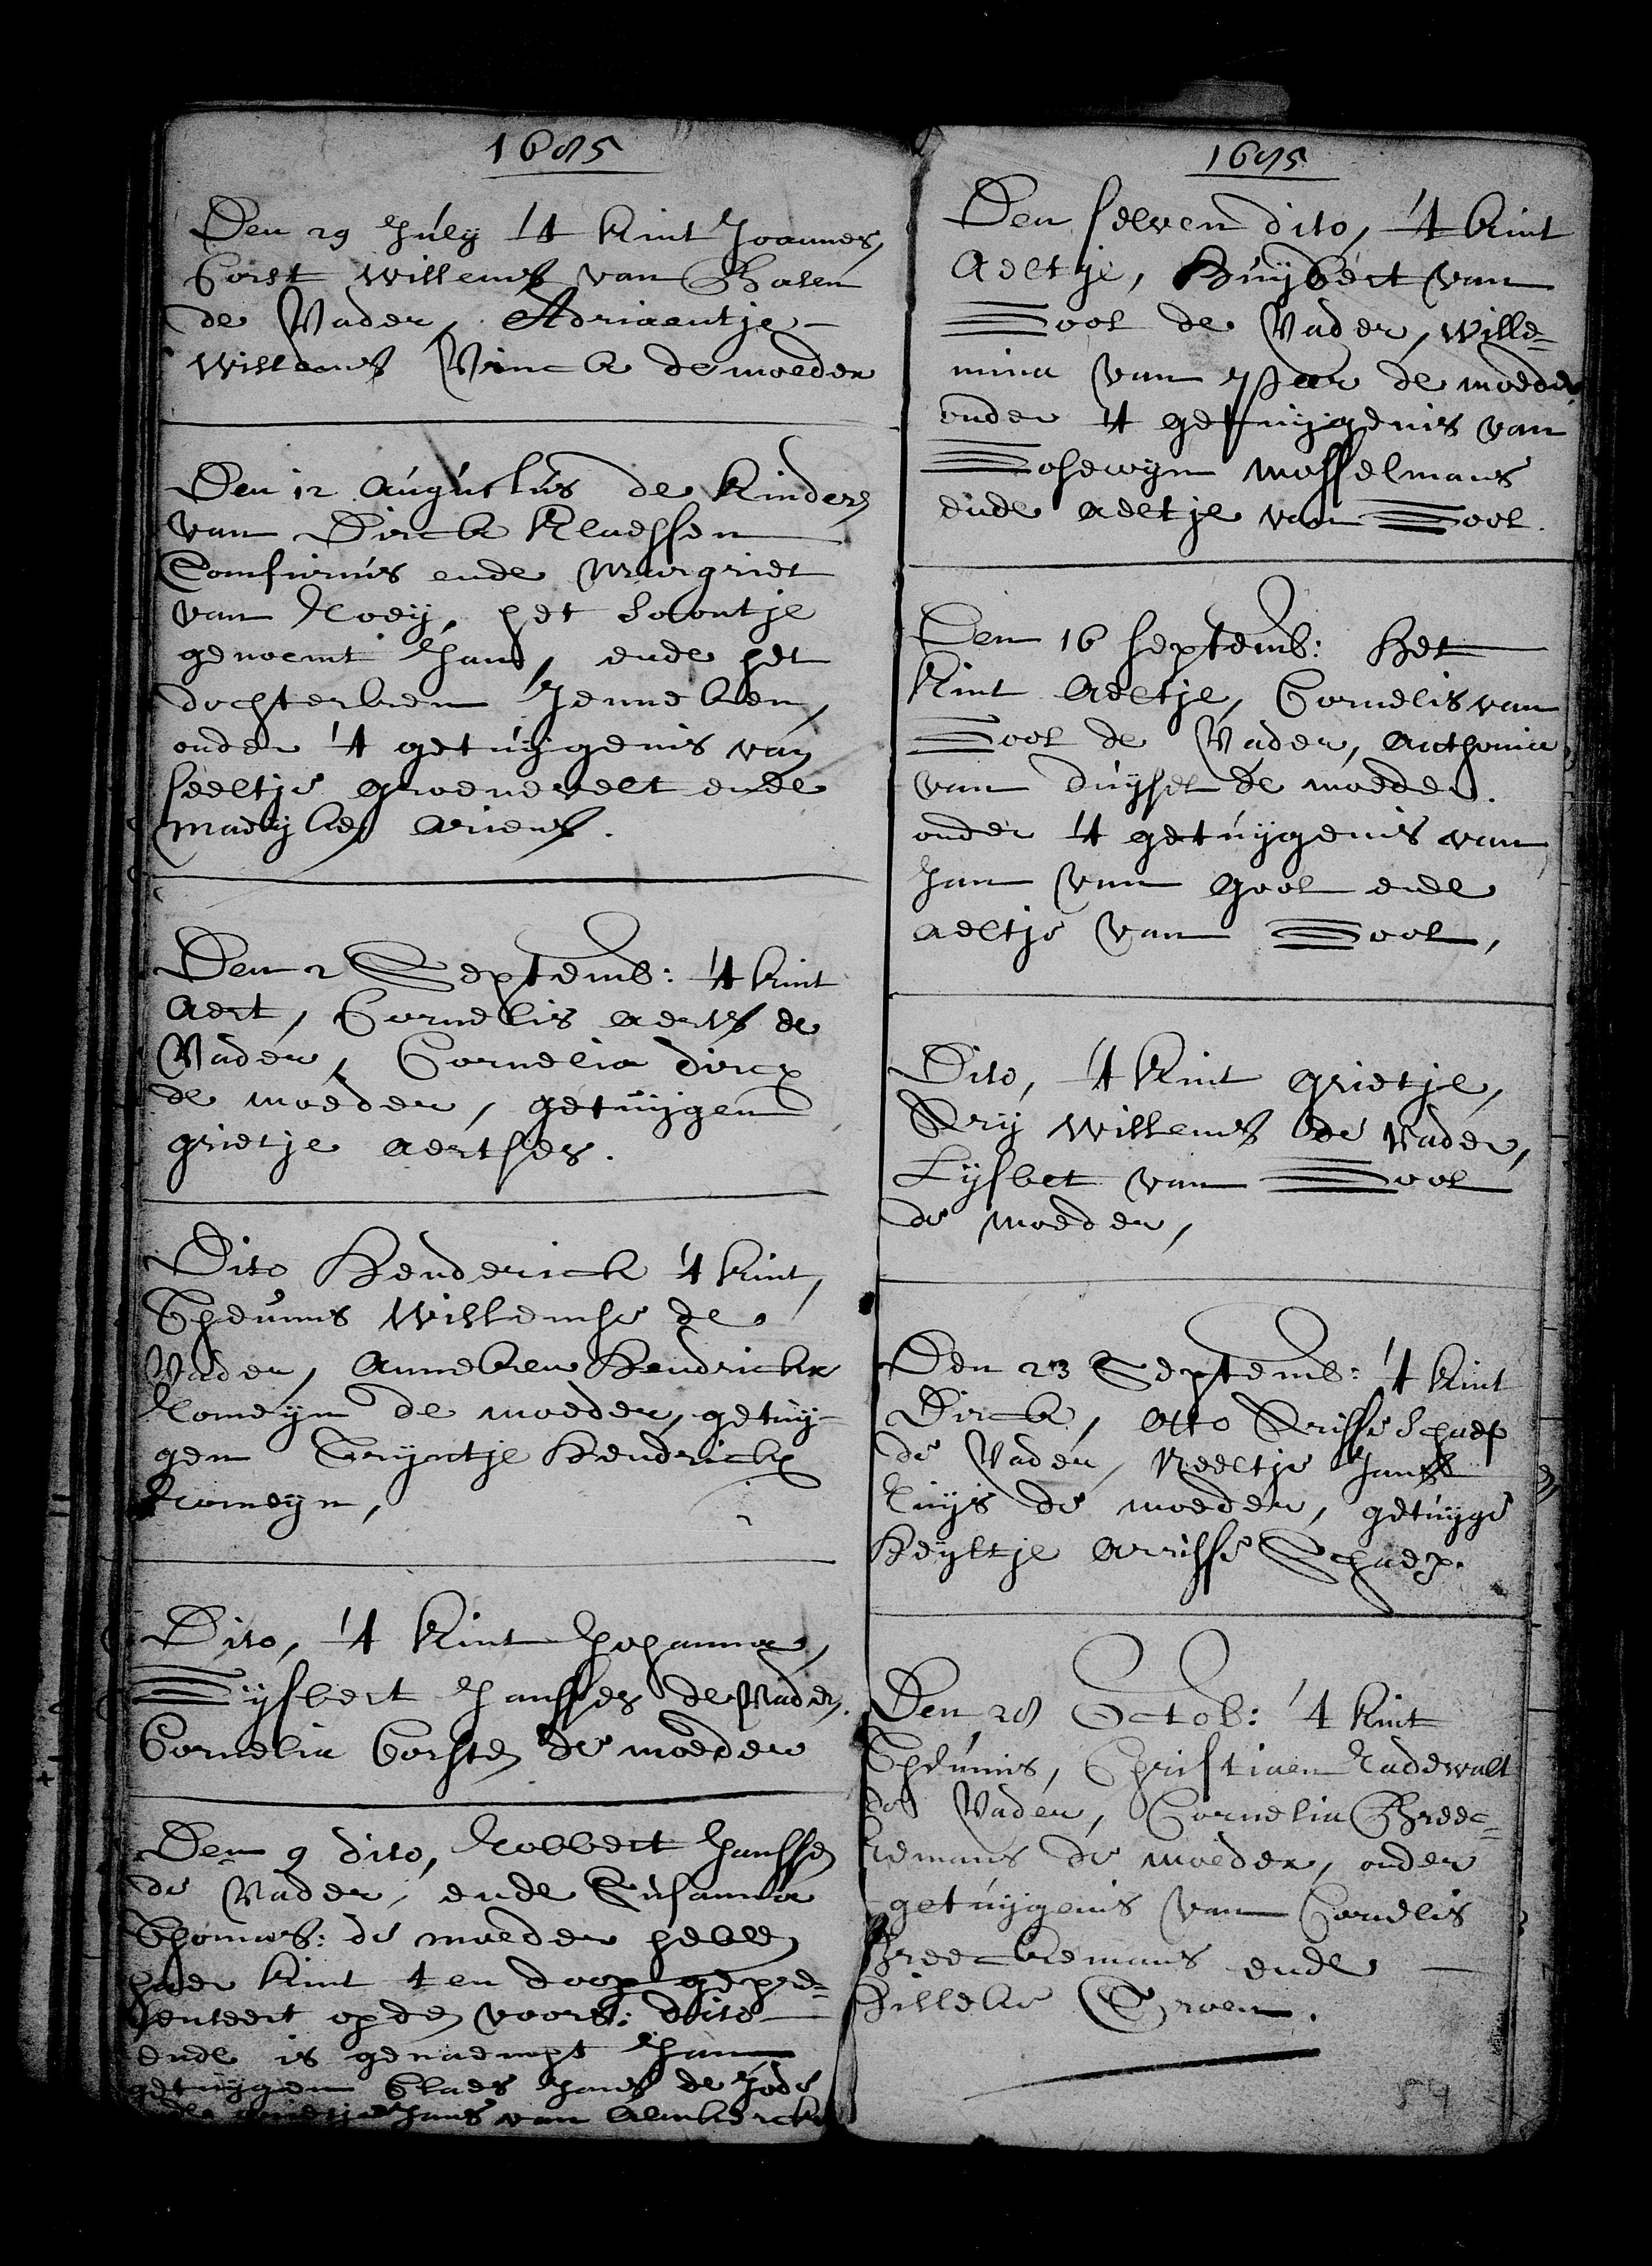 1685
Den 29 July 't kint Joannes,
Corst Willems van Balen
de Vader, Adriaentje
Willems Vinck de moeder
Den 12 Augustus de kinders
van Dirck Klaessen
Comfirius ende Margriet
van Roey, het soontje
genoemt Jan, ende het
dochterken Jenneken,
onder 't getuijgenis van
Neeltje Groenevelt ende
Maeyke Ariens.
Den 2 Septemb: 't kint
Aert, Cornelis Aerts de
Vader, Cornelia Dircx
de moeder, getuijgen
Grietje Aertses.
Dito Henderick 't kint,
Theunis Willemse de
Vader, Anneken Hendrickx
Romeyn de moeder, getuij-
gen Tryntje Hendrickx
Romeyn,
Dito, 't kint Johanna,
Gysbert Jansses de Vader.
Cornelia Corsten de moeder
Den 9 dito, Robbert Janssen
de Vader, ende Susanna
Thomas: de moeder hebben
haer kint ten doop gepre=
senteert op den voors: dito
ende is genaempt Jan
getuijgen Claes Jans de Jode
ende Jans van Almkerck
1685
Den selven dito, 't kint
Aeltje, Huybert van
Gool de Vader, Wille=
mina van Yper de moeder
onder 't getuijgenis van
Gosewyn Mosselmans
ende Aeltje van Gool.
Den 16 Septemb: Het
kint Aeltje, Cornelis van
Gool de Vader, Anthonia
van Duysel de moeder.
onder 't getuijgenis van
Jan van Gool ende
Aeltje van Gool,
Dito, 't kint Grietje,
Ary Willems de Vader,
Lysbet van Gool
de moeder,
Den 23 Septemb: 't kint
Dirck, Otto Arisse Schaep
de Vader, Neeltje Jans
Luijs de moeder, getuijge
Heyltje Arrisse Schaep.
Den 28 Octob: 't kint
Theunis, Christiaen Radewalt
de Vader, Cornelia Breec=
kemans de moeder, onder
getuijgenis van Cornelis
Breeckemans ende
Hilleke Groen.
54